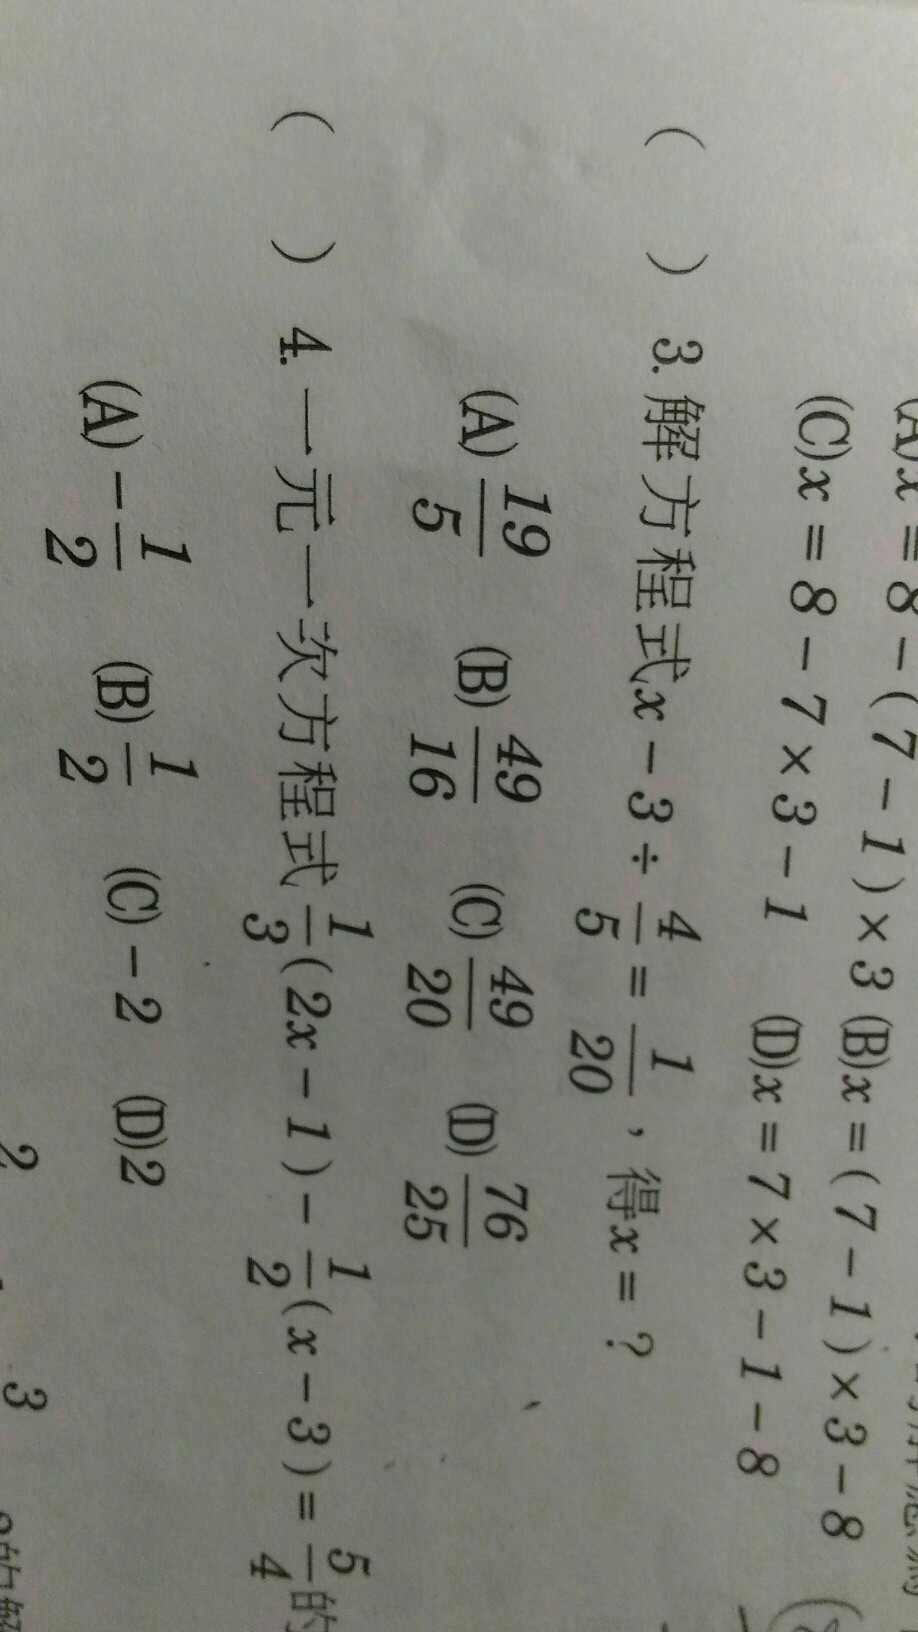 (A)x = 8 - (7 - 1) × 3 (B)x = (7 - 1) × 3 - 8
(C)x = 8 - 7 × 3 - 1 (D)x = 7 × 3 - 1 - 8
( ) 3. 解方程式x - 3 ÷ 4/5 = 1/20，得x = ？
(A) 19/5 (B) 49/16 (C) 49/20 (D) 76/25
( ) 4. 一元一次方程式 1/3 (2x - 1) - 1/2 (x - 3) = 5/4 的
(A) - 1/2 (B) 1/2 (C) - 2 (D) 2